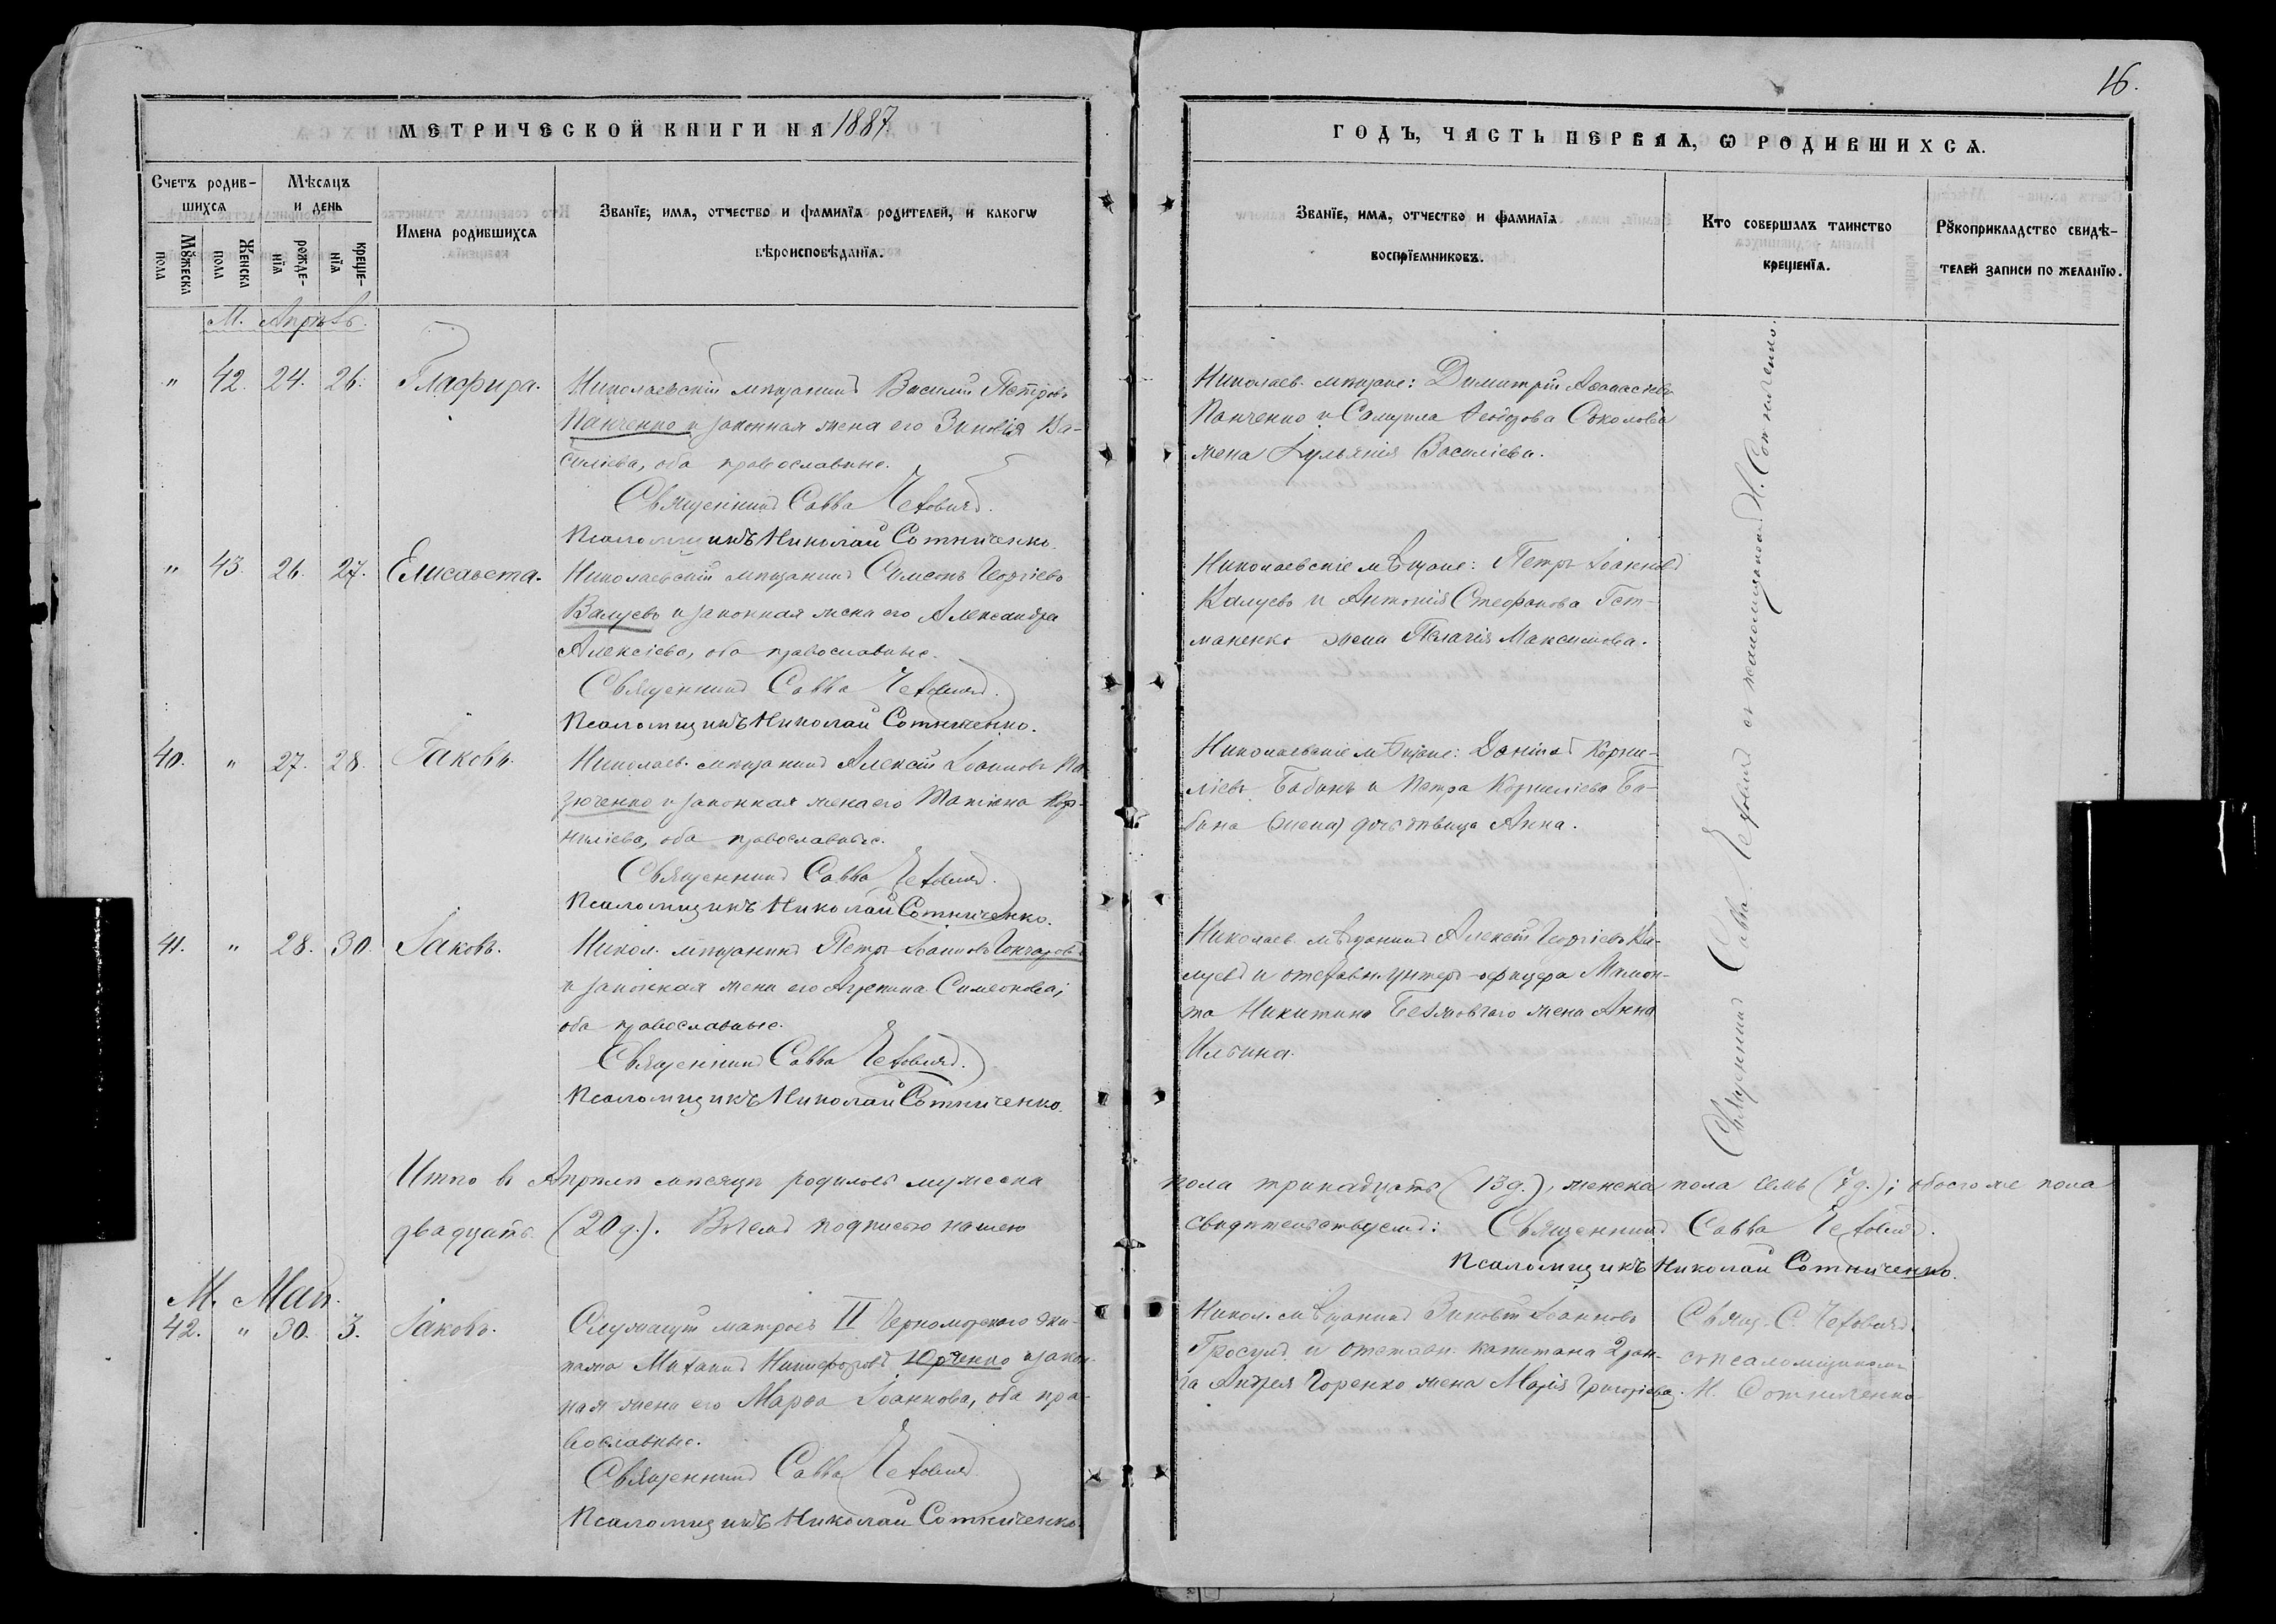 16.
МЕТРИЧЕСКОЙ КНИГИ НА 1887
ГОДЪ, ЧАСТЬ ПЕРВАЯ, Ѡ РОДИВШИХСЯ.
Счетъ родив-
шихся
Мѣсяцъ
и день
Мужеска
пола
Женска
пола
рожде-
нїя
креще-
нїя
Имена родившихся
Званїе, имя, отчество и фамилїя родителей, и какогѡ
вѣроисповѣданїя.
Званїе, имя, отчество и фамилїя
воспрїемниковъ.
Кто совершалъ таинство
крещенїя.
Рꙋкоприкладство свидѣ-
телей записи по желанїю.
М. Апрѣль.
" 42. 24. 26. Глафира.
Николаевскій мѣщанинъ Василій Петровъ
Панченко и законная жена его Зиновія Ва-
силіева, оба православные.
Священникъ Савва
Псаломщикъ Николай Сотниченко.
Николаев. мѣщане: Димитрій Аѳанасіевъ
Панченко и Самуила Ѳеодорова Соколова
жена Іульянія Василіева.
" 43. 26. 27. Елисавета.
Николаевскій мѣщанинъ Симеонъ Георгіевъ
Валуевъ и законная жена его Александра
Алексіева, оба православные.
Священникъ Савва
Псаломщикъ Николай Сотниченко.
Николаевскіе мѣщане: Петръ Іоанновъ
Калуевъ и Антонія Стефанова Гет-
маненко жена Пелагія Максимова.
40. " 27. 28. Іаковъ.
Николаев. мѣщанинъ Алексій Іоанновъ Ма-
зюченко и законная жена его Татіана Кор-
ниліева, оба православные.
Священникъ Савва
Псаломщикъ Николай Сотниченко.
Николаевскіе мѣщане: Даніилъ Корни-
ліевъ Бабинъ и Петра Корниліева Ба-
бина дочь дѣвица Анна.
41. " 28. 30. Іаковъ.
Никол. мѣщанинъ Петръ Іоанновъ Гончаровъ
и законная жена его Агрепина Симеонова,
оба православные.
Священникъ Савва
Псаломщикъ Николай Сотниченко.
Николаев. мѣщанинъ Алексій Георгіевъ Ка-
луевъ и отставн. унтеръ-офицера Мамон-
та Никитина жена Анна
Ильина.
Священникъ Савва съ псаломщикомъ Н. Сотниченко.
Итого въ Апрѣлѣ мѣсяцѣ родилось мужеска
пола тринадцать (13 д.), женска пола семь (7 д.); обоего же пола
двадцать (20 д.). Въ чемъ подписью нашею
свидѣтельствуемъ: Священникъ Савва
Псаломщикъ Николай Сотниченко.
М. Май.
42. " 30. 3. Іаковъ.
Служащій матросъ II Черноморскаго эки-
пажа Никифоровъ Юрченко и закон-
ная жена его Марѳа Іоаннова, оба пра-
вославные.
Священникъ Савва
Псаломщикъ Николай Сотниченко.
Никол. мѣщанинъ Зиновій Іоанновъ
Гросулъ и отставн. капитана 2 ран-
га Андрея Горенко жена Марія Григоріева.
Свящ. С.
съ псаломщикомъ
Н. Сотниченко